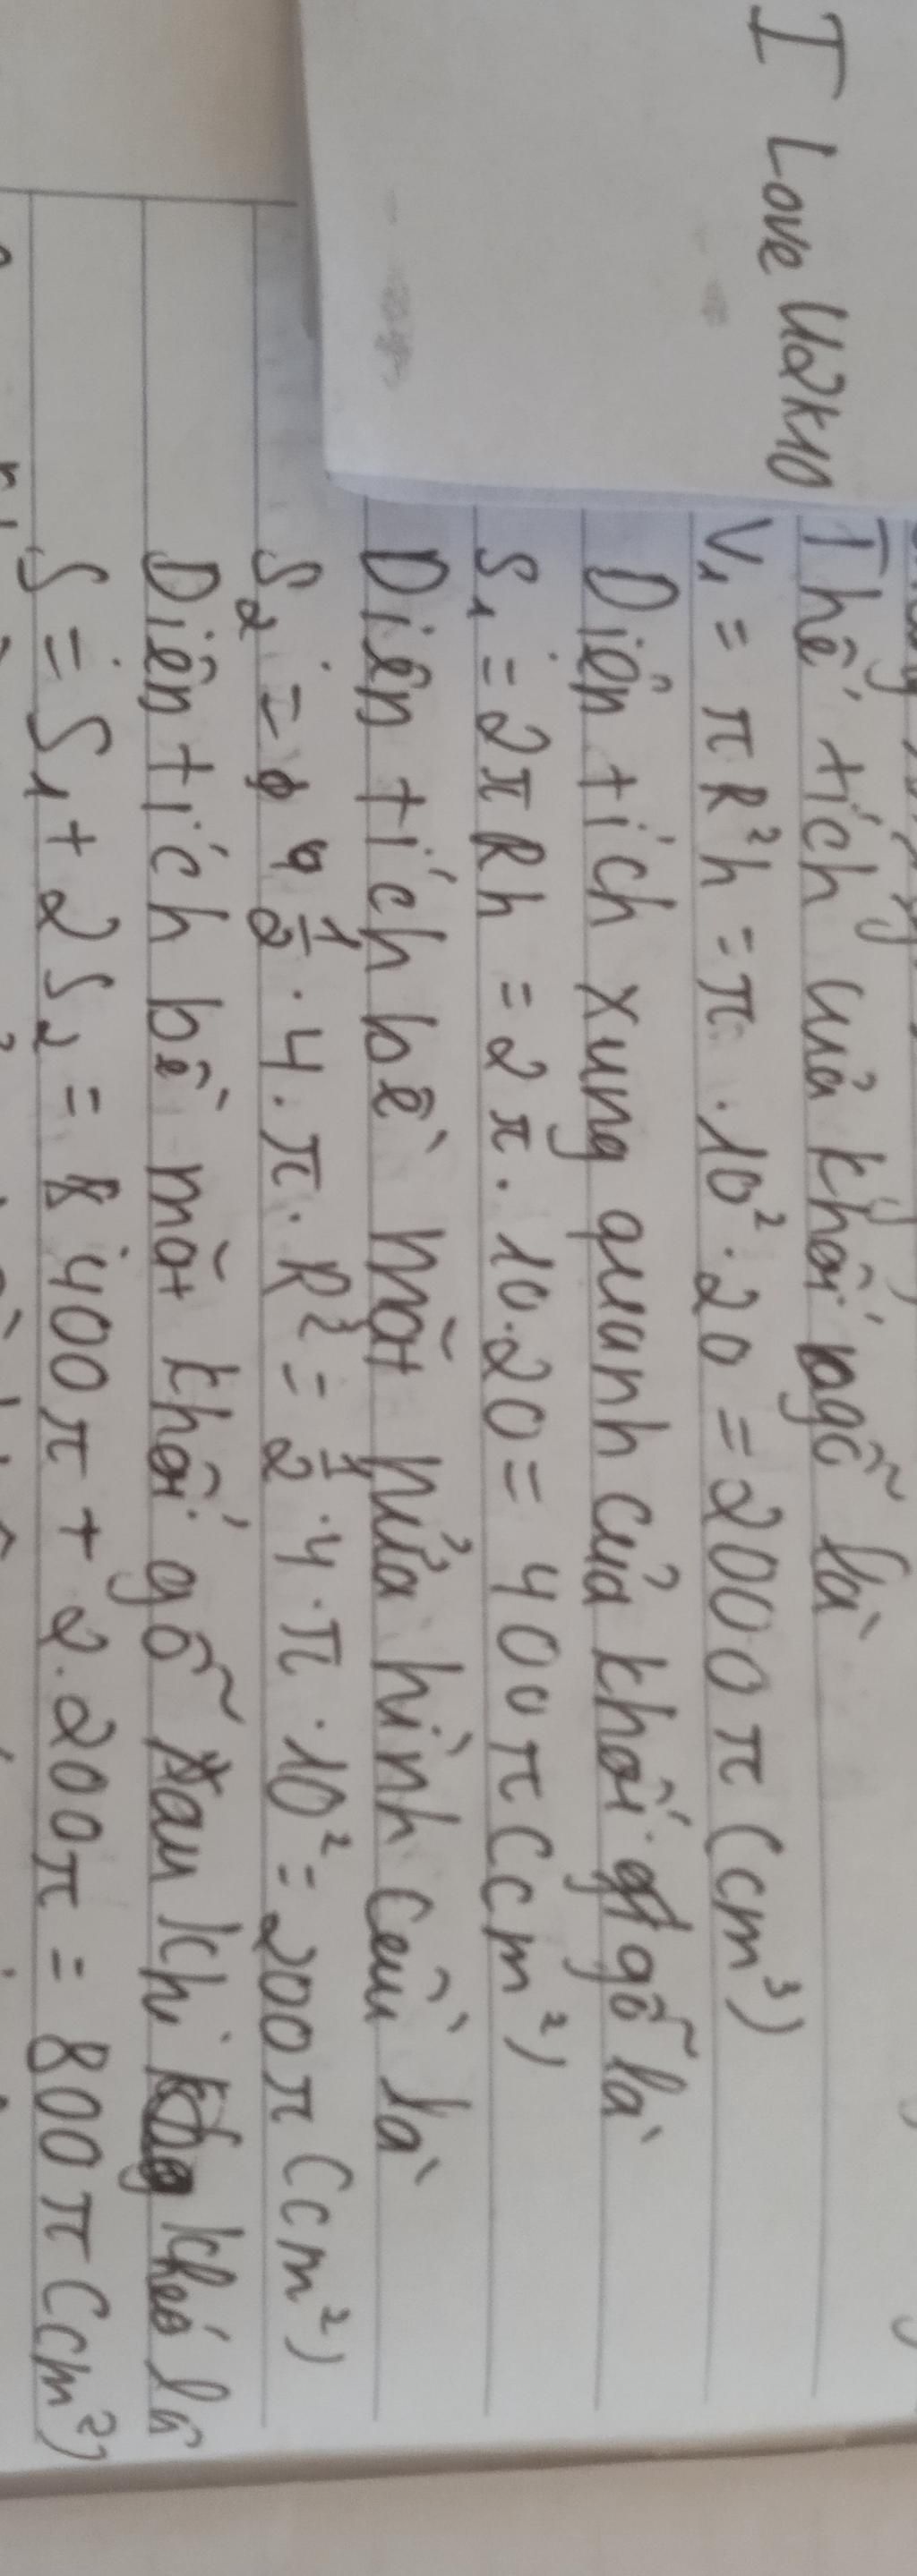 I Love U2K10
Thể tích của khối gỗ là
V₁ = πR²h = π . 10² . 20 = 2000π (cm³)
Diện tích xung quanh của khối gỗ là
S₁ = 2πRh = 2π . 10 . 20 = 400π (cm²)
Diện tích bề mặt nửa hình cầu là
S₂ = 1/2 . 4 . π . R² = 1/2 . 4 . π . 10² = 200π (cm²)
Diện tích bề mặt khối gỗ sau khi khoét là
S = S₁ + 2S₂ = 400π + 2 . 200π = 800π (cm²)